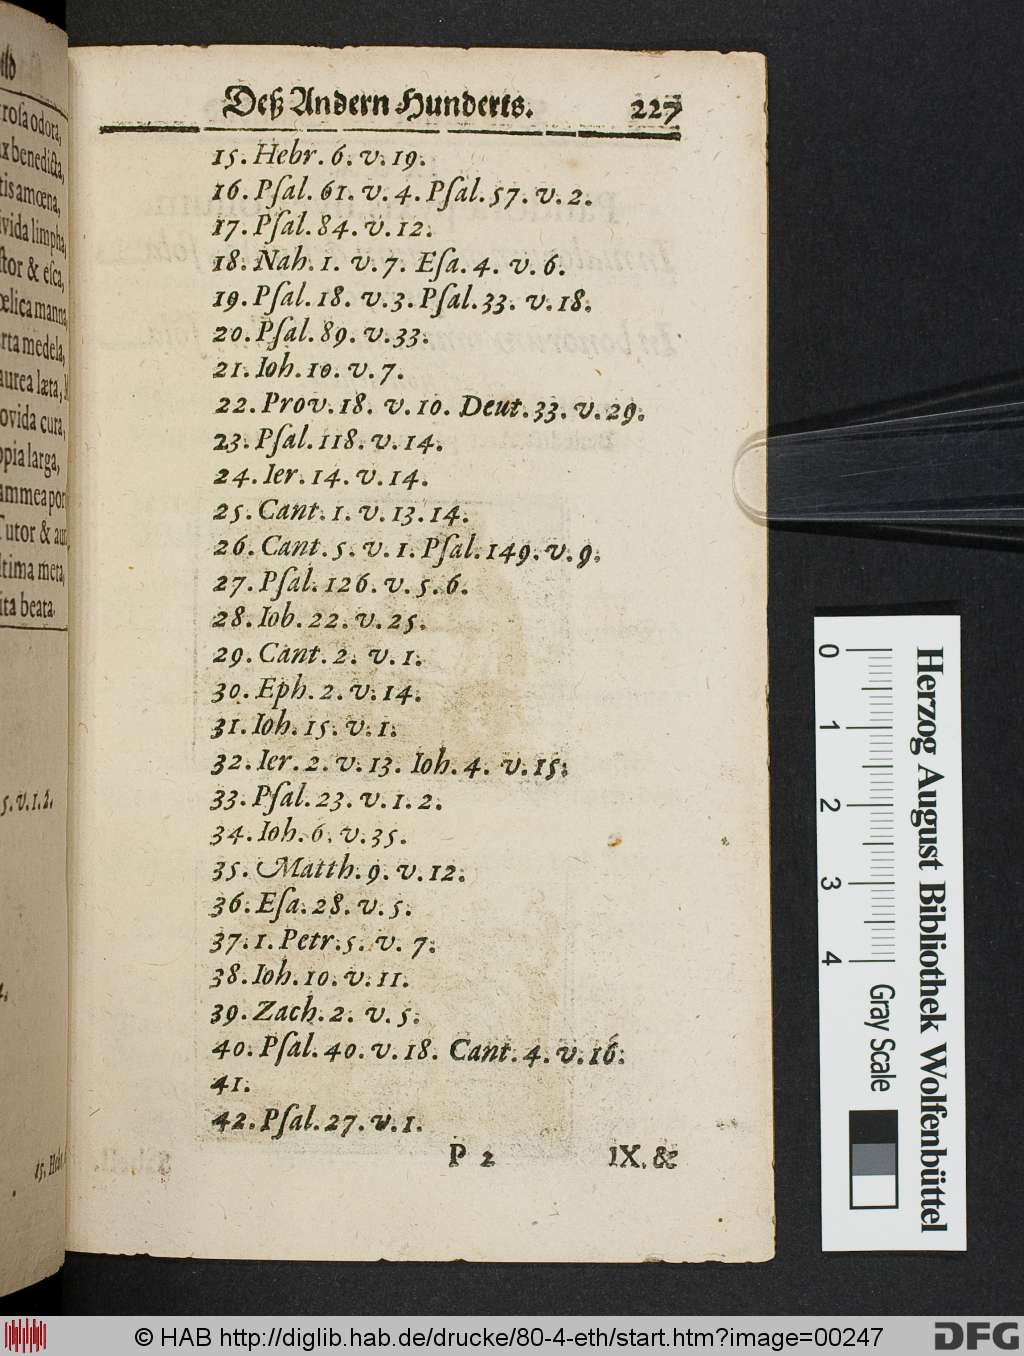 Deß Andern Hunderts. 227
15. Hebr. 6. v. 19.
16. Pſal. 61. v. 4. Pſal. 57. v. 2.
17. Pſal. 84. v. 12.
18. Nah. 1. v. 7. Eſa. 4. v. 6.
19. Pſal. 18. v. 3. Pſal. 33. v. 18.
20. Pſal. 89. v. 33.
21. Ioh. 10. v. 7.
22. Prov. 18. v. 10. Deut. 33. v. 29.
23. Pſal. 118. v. 14.
24. Ier. 14. v. 14.
25. Cant. 1. v. 13. 14.
26. Cant. 5. v. 1. Pſal. 149. v. 9.
27. Pſal. 126. v. 5. 6.
28. Iob. 22. v. 25.
29. Cant. 2. v. 1.
30. Eph. 2. v. 14.
31. Ioh. 15. v. 1.
32. Ier. 2. v. 13. Ioh. 4. v. 15.
33. Pſal. 23. v. 1. 2.
34. Ioh. 6. v. 35.
35. Matth. 9. v. 12.
36. Eſa. 28. v. 5.
37. 1. Petr. 5. v. 7.
38. Ioh. 10. v. 11.
39. Zach. 2. v. 5.
40. Pſal. 40. v. 18. Cant. 4. v. 16.
41.
42. Pſal. 27. v. 1.
P 2 IX. &
roſa odora,
x benedicta,
tis amœna,
vida limpha,
ſtor & eſca,
œlica manna,
rta medela,
aurea læta,
ovida cura,
opia larga,
ammea por
Tutor & au
ltima meta,
ita beata.
5. v. 1. 2.
15. Heb
0 1 2 3 4
Herzog August Bibliothek Wolfenbüttel
Gray Scale
© HAB http://diglib.hab.de/drucke/80-4-eth/start.htm?image=00247
DFG